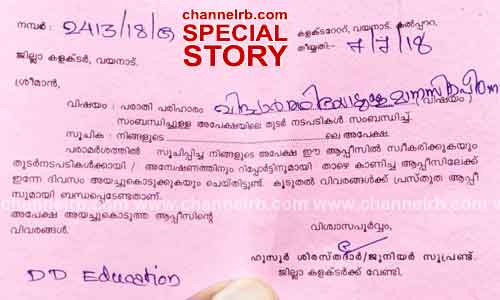 channelrb.com
SPECIAL
STORY
നമ്പർ : 2413/18/
കളക്ടറേറ്റ്, വയനാട്. കൽപ്പറ്റ,
തീയ്യതി:- 7/7/18
ജില്ലാ കളക്ടർ, വയനാട്.
ശ്രീമാൻ,
വിഷയം : പരാതി പരിഹാരം (വിഷയം)
സംബന്ധിച്ചുള്ള അപേക്ഷയിലെ തുടർ നടപടികൾ സംബന്ധിച്ച്.
സൂചിക : നിങ്ങളുടെ ലെ അപേക്ഷ.
പരാമർശത്തിൽ സൂചിപ്പിച്ച നിങ്ങളുടെ അപേക്ഷ ഈ ആപ്പീസിൽ സ്വീകരിക്കുകയും
തുടർനടപടികൾക്കായി / അന്വേഷണത്തിനും റിപ്പോർട്ടിനുമായി താഴെ കാണിച്ച ആപ്പീസിലേക്ക്
ഇന്നേ ദിവസം അയച്ചുകൊടുക്കുകയും ചെയ്തിട്ടുണ്ട്. കൂടുതൽ വിവരങ്ങൾക്ക് പ്രസ്തുത ആപ്പീ
സുമായി ബന്ധപ്പെടേണ്ടതാണ്.
www.channelrb.com www.channelrb.com
അപേക്ഷ അയച്ചുകൊടുത്ത ആപ്പീസിന്റെ
വിവരങ്ങൾ.
വിശ്വാസപൂർവ്വം,
ഹുസൂർ ശിരസ്തദാർ/ജൂനിയർ സൂപ്രണ്ട്.
ജില്ലാ കളക്ടർക്ക് വേണ്ടി.
DD Education